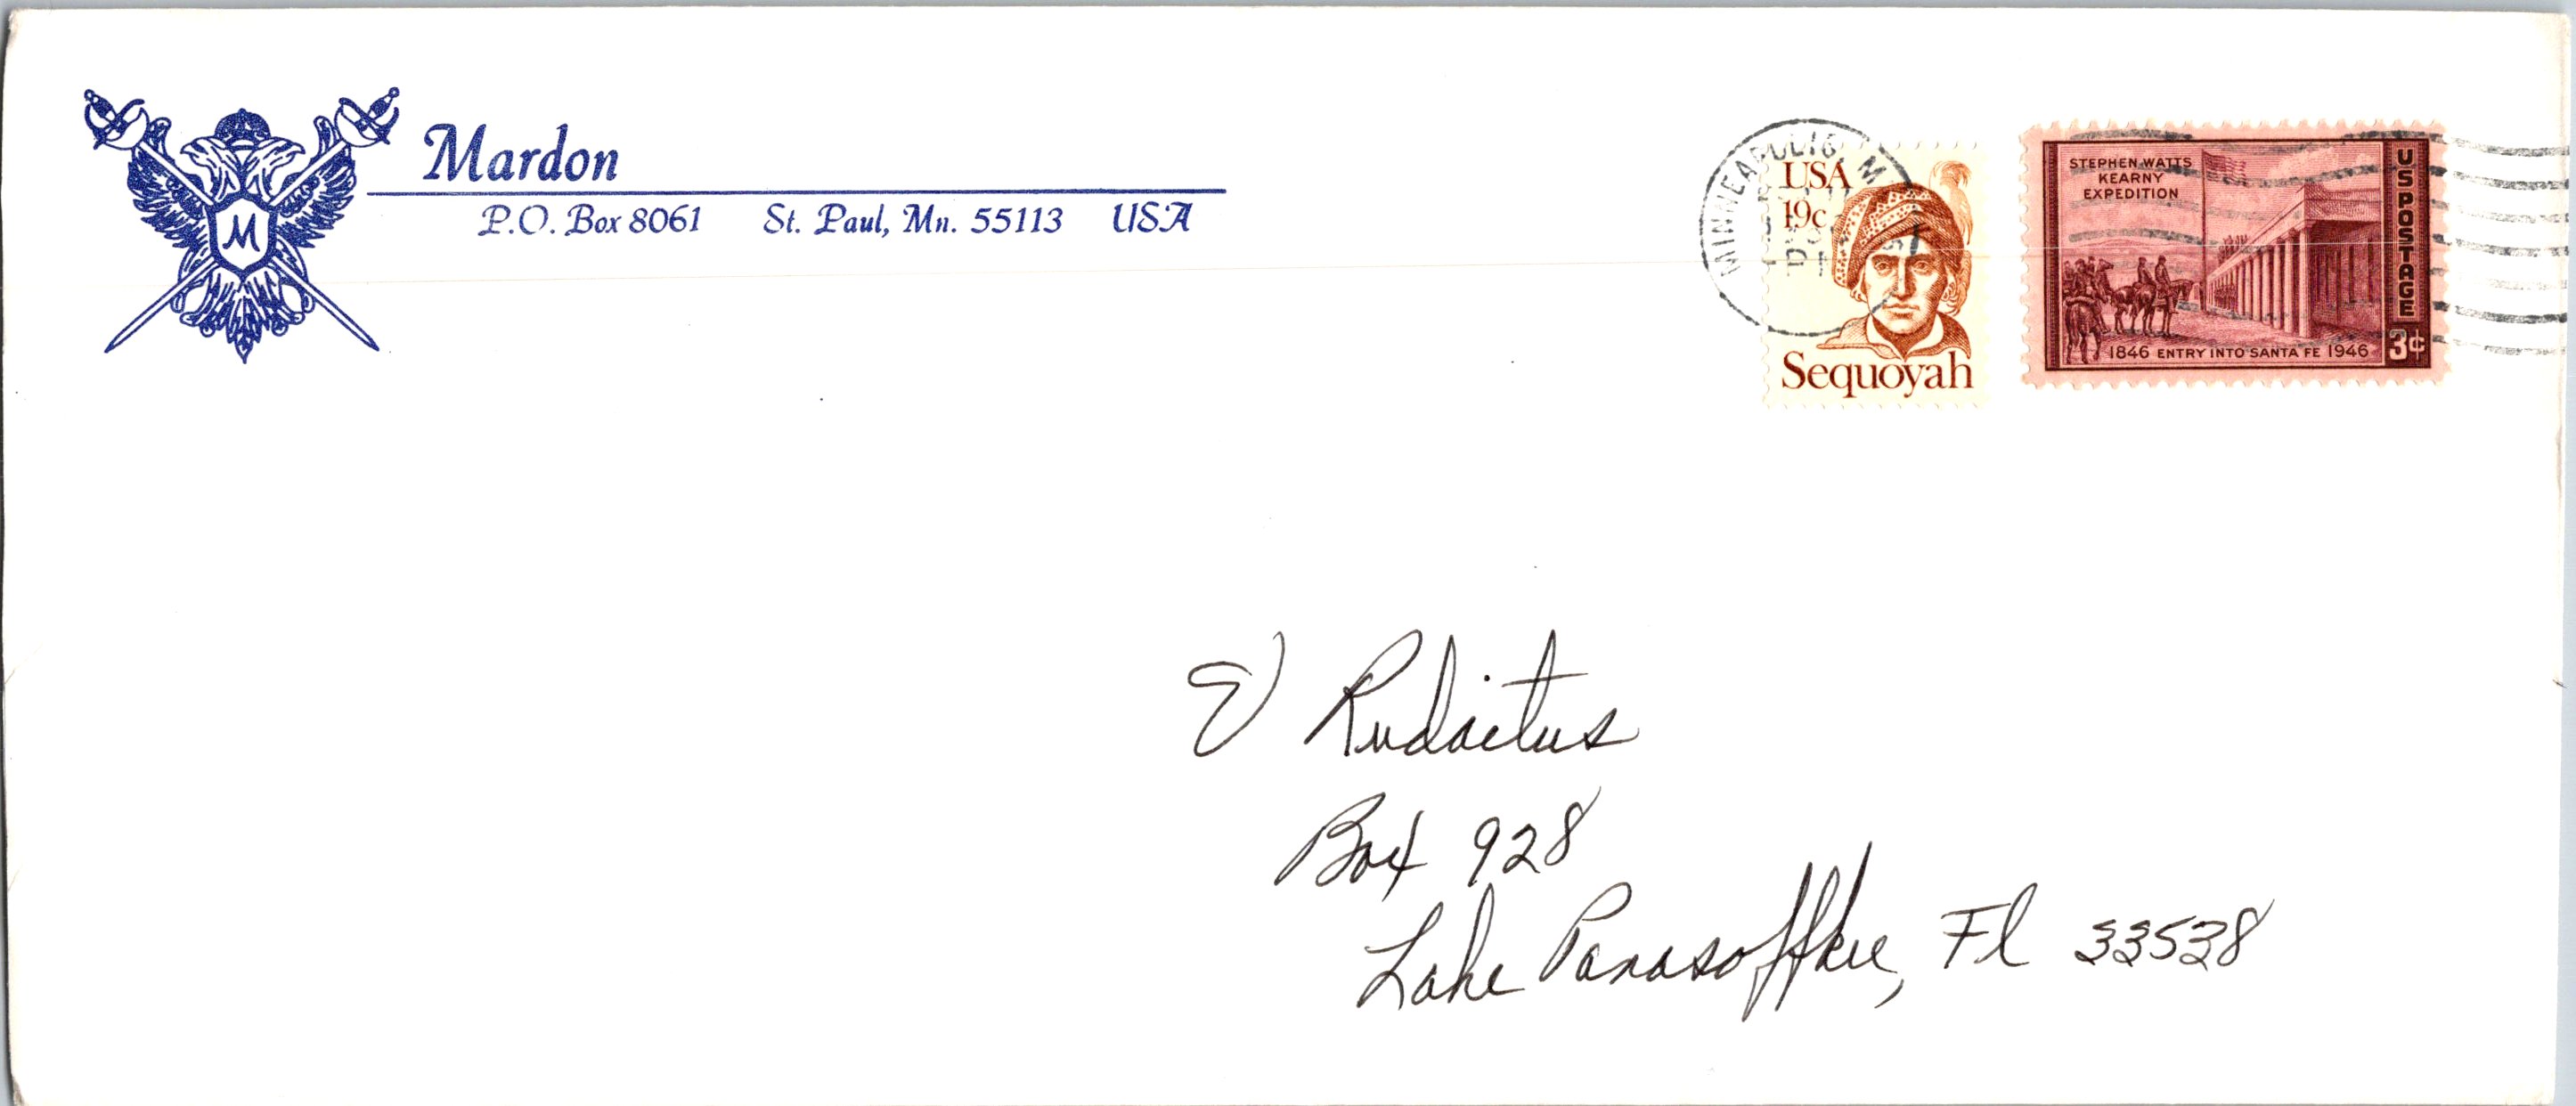 Mardon
P.O. Box 8061 St. Paul, Mn. 55113 USA
M
MINNEAPOLIS, M
USA
19c
Sequoyah
STEPHEN WATTS
KEARNY
EXPEDITION
US POSTAGE
1846 ENTRY INTO SANTA FE 1946
3¢
E Rudaitus
Box 928
Lake Panasoffkee, Fl 33538